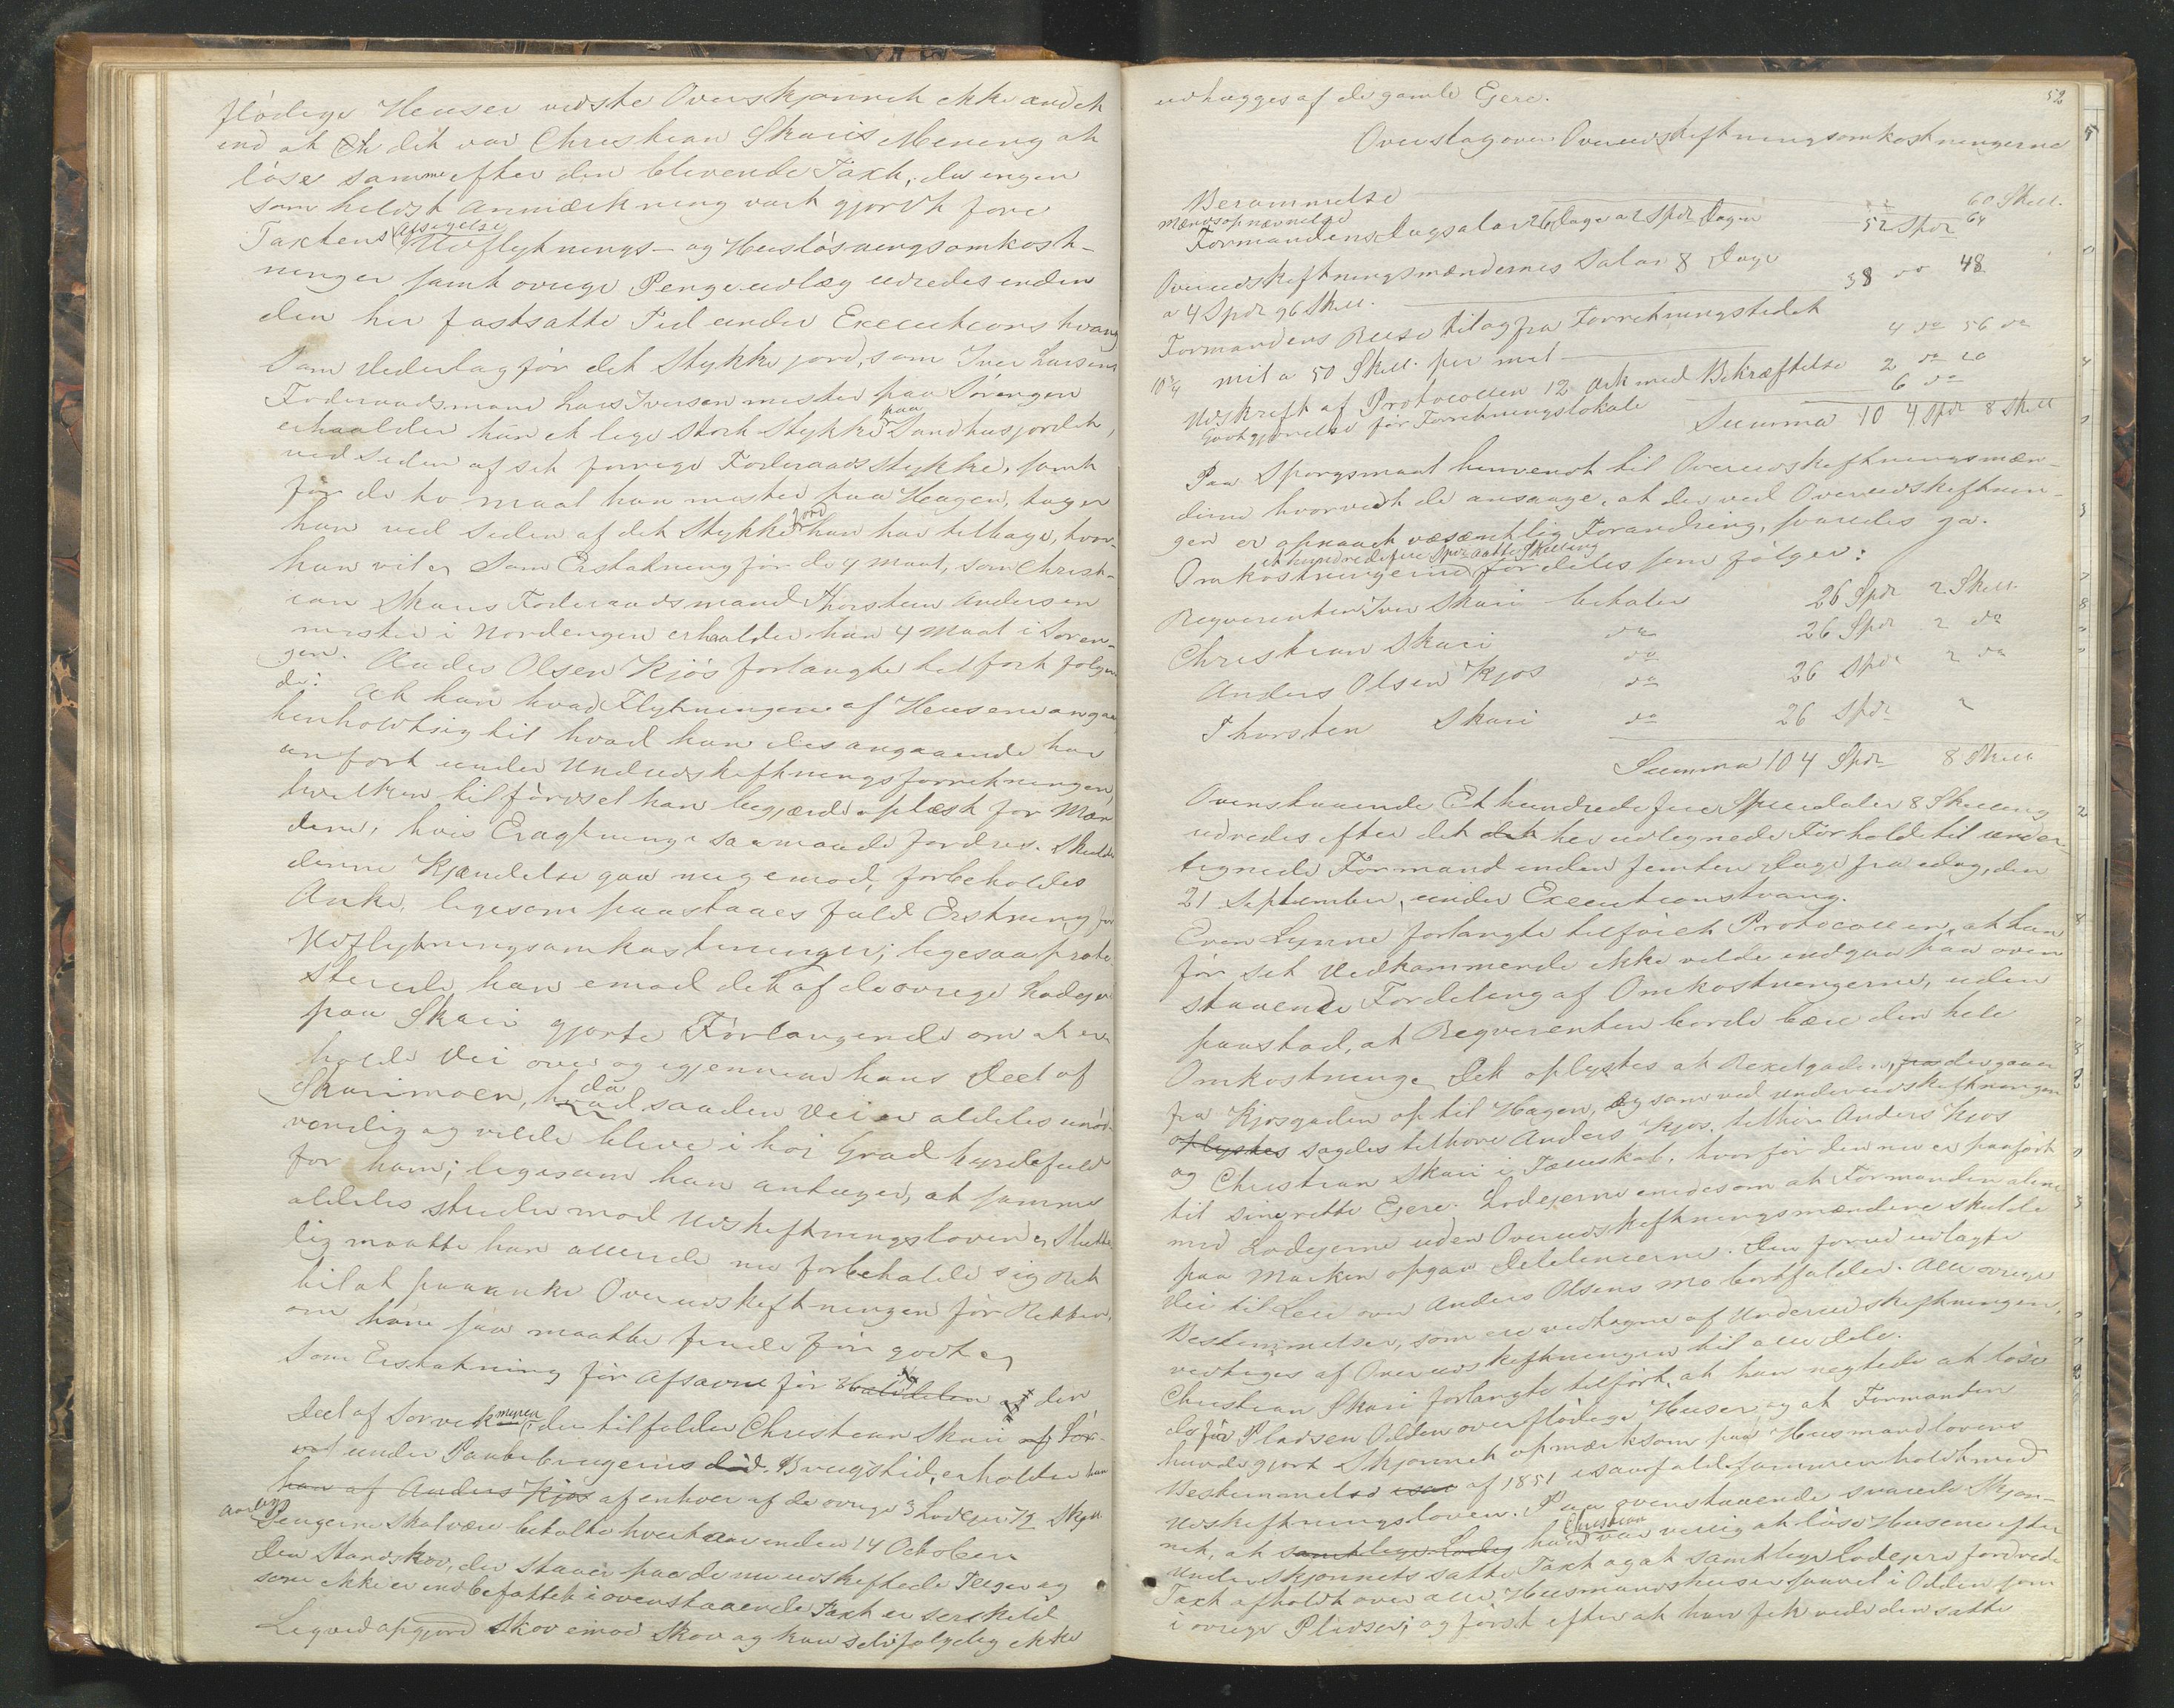 flödige Huser vidste Overskjønnet ikke andet
end at det var Christian Skaris Mening at
løse samme efter den blivende Taxt, da ingen
som heldst Anmærkning vart gjordt före
Taxtens Afsigelse Udflytnings- og Huusløsningsomkost-
ninger samt øvrige Pengeudlæg udredes inden
den her fastsatte Tid under Executions tvang
Som Vederlag før det Stykke jord, som Iver Larsens
Föderaadsmand Lars Iversen mister paa Sörengen
erhaalder han et lige stort Stykke paa Sandhusjordet,
ved Siden af sit forrige Föderaadsstykke, samt
for de to maal han mister paa Haugen, tager
han ved Siden af det Stykke jord han har tilbage, hvor
han vil. Som Erstatning før de 4 maal, som Christ-
ian Skaris Föderaadsmand Thorsten Andersen
mister i Nordengen erhaalder han 4 Maal i Søren-
gen. Anders Olsen Kjøs forlangte tilført følgen
de: At han hvad Flytningen af Husene angaar
henholdt sig til hvad han des angaaende har
anført under Underudskiftningsforretningen,
hvilken tilførdsel han begjærde oplæst for Mæn
dene, hvis Eragtning saamaade fordres. Skulde
denne Kjendelse gaa mig imod, forbeholdes
Anke, ligesom paastaaes fuld Erstning for
Udflytningsomkostninger; ligesaa prote-
sterede han emod det af de øvrige Lodejer
paa Skari gjorte Forlangende om at er
holde Vei over og igjennem hans Deel af
Skarimoen, da saaden Vei er aldeles unød-
vendig og vilde blive i høi Grad byrdefuld
for ham; ligesom han antager, at samme
aldeles strider mod Udskiftningsloven. Slutte
lig maatte han allerede nu forbeholde sig Ret
til at paaanke Overudskiftningen for Retten,
om han saa maatte finde för godt.
Som Erstatning för Afsavn för den
Deel af Sørvekmyren, der tilfalder Christian Skari
under Paabobrugerens Brugstid, erholder han
han af Anders Kjøs af enhver af de øvrige 3 Lodejer 72 Skill
aarlig Pengene skal være betalte hvert Aar inden 14 October
Den Standskov, der staaer paa de nu udskiftede Teiger og
som ikke er indbefattet i ovenstaaende Taxt er serskild
Ligved afgjord Skov imod Skov og kan selvfølgelig ikke
udhugges af de gamle Ejere.
52
Overslag over Overudskiftningsomkostningerne
Berammelse 60 Skill.
Mændsopnævnelse 64
Formandens Dagsalar 26 Dage a 2 Spdr Dagen 52 Spdr
Overudskiftningsmændenes Salar 8 Dage
a 4 Spdr 96 Skill. 38 do 48
Formandens Reise til og fra Forretningstedet
10 3/4 mil a 50 Skill. per mil 4 do 56 do
Udskrift af Protocollen 12 Ark med Bekræftelse 2 do 20
Godtgjørelse for Forretningslokale 6 do
Summa 104 Spdr 8 Skill
Paa Spørgsmaal henvendt til Overudskiftningsmæn-
dene hvorvidt de ansaage, at der ved Overudskiftnin-
gen er opnaaet væsæntlig Forandring, svaredes ja.
Omkostningerne et hundrede fire Spdr aatte Skilling fordeles som følger:
Reqvirenten Iver Skari betaler 26 Spdr 2 Skill.
Christian Skari do 26 Spdr 2 do
Anders Olsen Kjøs do 26 Spdr 2 do
Thorsten Skari do 26 Spdr 2
Summa 104 Spdr 8 Skill
Ovenstaaende Et hundrede fire Speciedaler 8 Skilling
udredes efter det det her udlignede Förhold til under-
tegnede Formand inden femten Dage fra idag, den
21 September, under Executionstvang.
Even Lynne forlangte tilføiet Protocollen, at han
før sit Vedkommende ikke vilde indgaa paa oven
staaende Fordeling af Omkostningerne, uden
paastod, at Reqvirenten borde bære den hele
Omkostninge. Det oplystes at Rexelgaden, der gaaer
fra Kjøsgaden op til Haugen, og som ved Underudskiftningen
oplystes sagdes tilhøre Anders Kjøs, tilhør Anders Kjøs
og Christian Skari i Fælleskab, hvorfør den nu er paaført
til sine rette Ejere. Lodejerne enedes om at Formanden alene
med Lodejerne uden Overudskiftningsmændene skulde
paa Marken opgaa Delelinierne. Den forud udlagte
Vei til Leie over Anders Olsens Mo bortfalder. Alle øvrige
Bestemmelser, som ere vedtagne af Underudskiftningen,
vedtages af Overudskiftningen til alle dele.
Christian Skari forlangte tilført, at han negtede at løse
de før Pladsen Odden overflødige Huser, og at Formanden
havde gjort Skjønnet opmærksom paa Husmandslovens
Bestemmelse af 1851 isaafald sammenholdt med
Udskiftningsloven. Paa ovenstaaende svarede Skjøn-
net, at samtlige Lodej Christian var villig at løse Husene efter
Underskjønnets satte Taxt og at samtlige Lodejere fordrede
Taxt afholdt over alle Husmandshuser saavel i Odden som
i øvrige Pladser; og først efter at han fik vide den satte